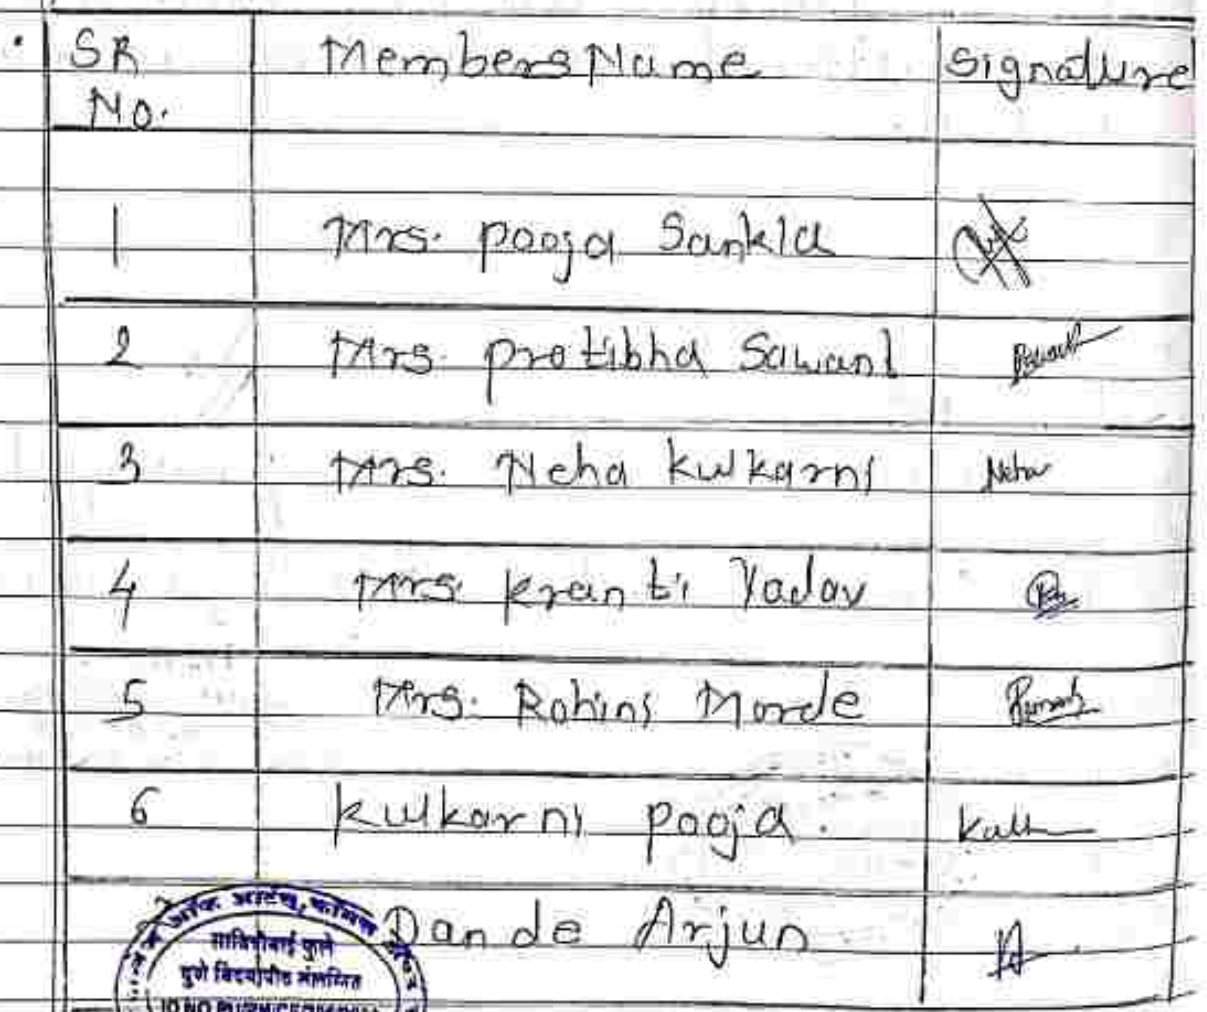 SR No. Members Name Signature
1 Mrs. Pooja Sankla
2 Mrs. Pratibha Sawant
3 Mrs. Neha Kulkarni Neha
4 Mrs. Kranti Yadav
5 Mrs. Rohini Morde
6 Kulkarni Pooja.
Dande Arjun
ऑफ आर्टस्, कॉमर्स
सावित्रीबाई फुले
पुणे विद्यापीठ संलग्नित